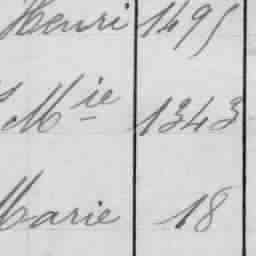 Henri 1495
Mie 1343
Marie 18